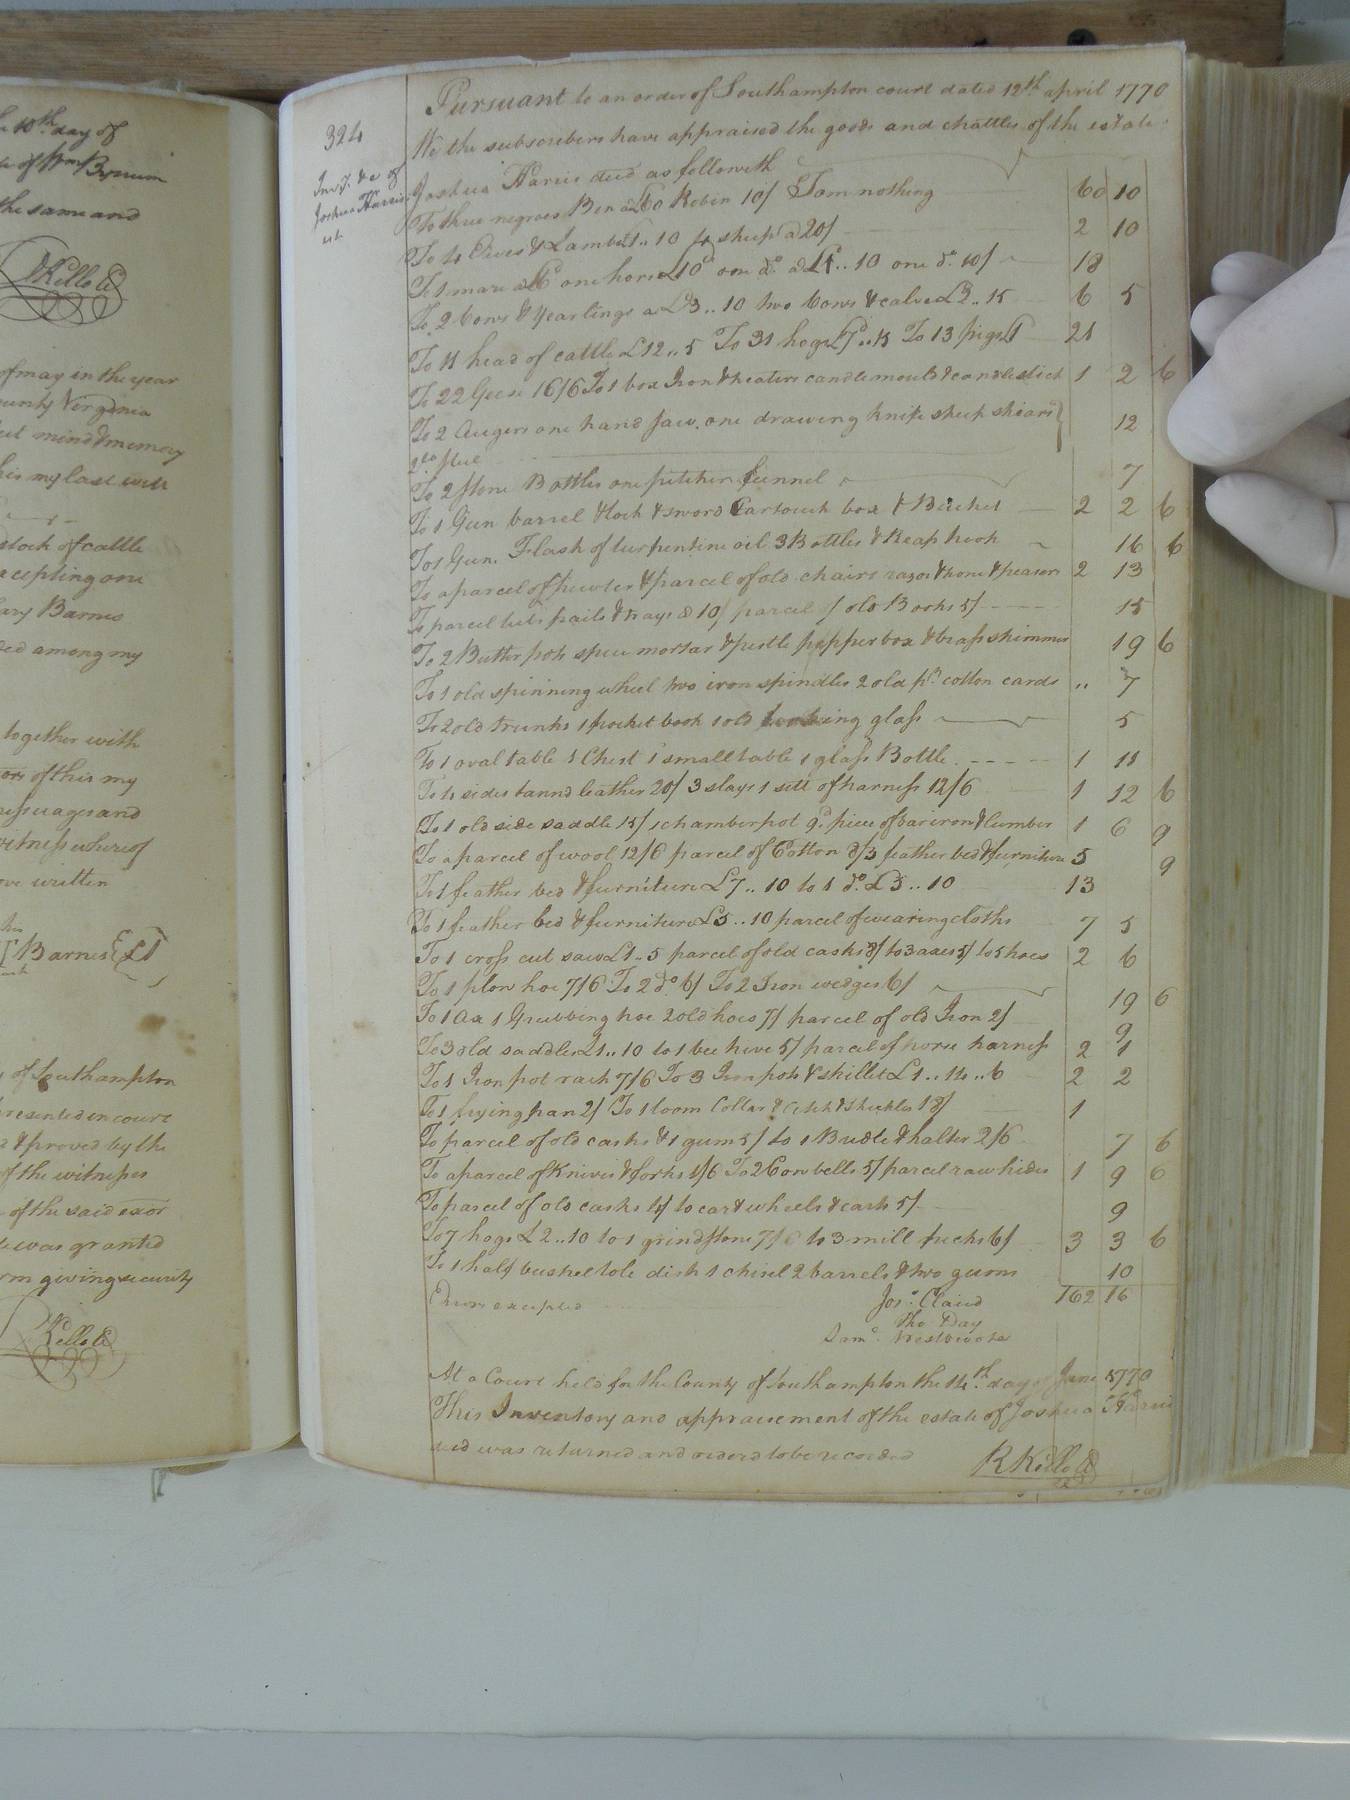 10th day of
of Wm Bynum
the same and
RKello CC
of may in the year
County Virginia
mind & memory
this my last will
stock of cattle
accepting one
Mary Barnes
among my
together with
of this my
messuages and
witness whereof
above written
his
Barnes LS
mark
of Southampton
presented in court
& proved by the
of the witnesses
of the said exor
was granted
form giving security
RKello CC
324
Joshua Harris
Pursuant to an order of Southampton court dated 12th april 1770
We the subscribers have appraised the goods and chattles of the estate
Joshua Harris decd as followeth
To three negroes Ben a £60 Robin 10/ & Tom nothing 60 10
To 4 Ewes & Lambs £1..10 sheep a 20/ 2 10
To 1 mare a £6 one horse £10 one do. a £1..10 one do. 10/ 18
To 2 Cows & yearlings a £3..10 two Cows & calves £2..15 6 5
To 11 head of cattle £12..5 To 31 hogs £7..15 To 13 pigs £1 21
To 22 Geese 16/6 To 1 box Iron & heaters candlemoulds & candlestick 1 2 6
To 2 Augers one hand saw, one drawing knife sheep shears 12
To 2 stone Bottles one pitcher funnel 7
To 1 Gun barrel & lock & sword Cartouch box & Bucket 2 2 6
To 1 Gun. Flask of turpentine oil 3 Bottles & Reap hook 16 6
To a parcel of pewter & parcel of old chairs razor & hone & 2 13
To parcel tubs pails & trays a 10/ parcel of old Books 5/ 15
To 2 Butter pots spice mortar & pestle pepper box & brass skimmer 19 6
To 1 old spinning wheel two iron spindles 2 old pr. cotton cards .. 7
To 2 old trunks 1 pocket book 1 old looking glass 5
To 1 oval table 1 Chest 1 small table 1 glass Bottle 1 11
To 4 sides tannd leather 20/ 3 slays 1 sett of harness 12/6 1 12 6
To 1 old side saddle 15/ 1 chamberpot 9d. piece of bar iron & lumber 1 6 9
To a parcel of wool 12/6 parcel of Cotton feather bed & furniture 5 9
To 1 feather bed & furniture £7..10 to 1 do. £5..10 13
To 1 feather bed & furniture £5..10 parcel of wearing cloths 7 5
To 1 cross cut saw £1..5 parcel of old casks 8/ to 3 axes 5/ to 5 hoes 2 6
To 1 plow hoe 7/6 To 2 do. 6/ To 2 Iron wedges 6/ 19 6
To 1 Ax 1 Grubbing hoe 2 old hoes 7/ parcel of old Iron 2/ 9
To 3 old saddles £1..10 to 1 bee hive 5/ parcel of horse harness 2 1
To 1 Iron pot rack 7/6 To 3 Iron pots & skillet £1..14..6 2 2
To 1 frying pan 2/ To 1 loom Collar & shackles 18/ 1
To parcel of old casks & 1 gum 5/ to 1 Bridle & halter 2/6 7 6
To a parcel of Knives & forks 4/6 To 2 Cow bells 5/ parcel raw hides 1 9 6
To parcel of old casks 4/ to cart wheels & cart 5/ 9
To 7 hogs £2..10 to 1 grindstone 7/6 to 3 mill pecks 6/ 3 3 6
To 1 half bushel tole dish 1 chisel 2 barrels & two gums 10
Errors excepted 162 16
Jos: Claud
Tho Day
Sam: Westbrooke
At a Court held for the County of Southampton the 14th. day of June 1770
This Inventory and appraisement of the estate of Joshua Harris
decd was returned and orderd to be recorded
RKello CC